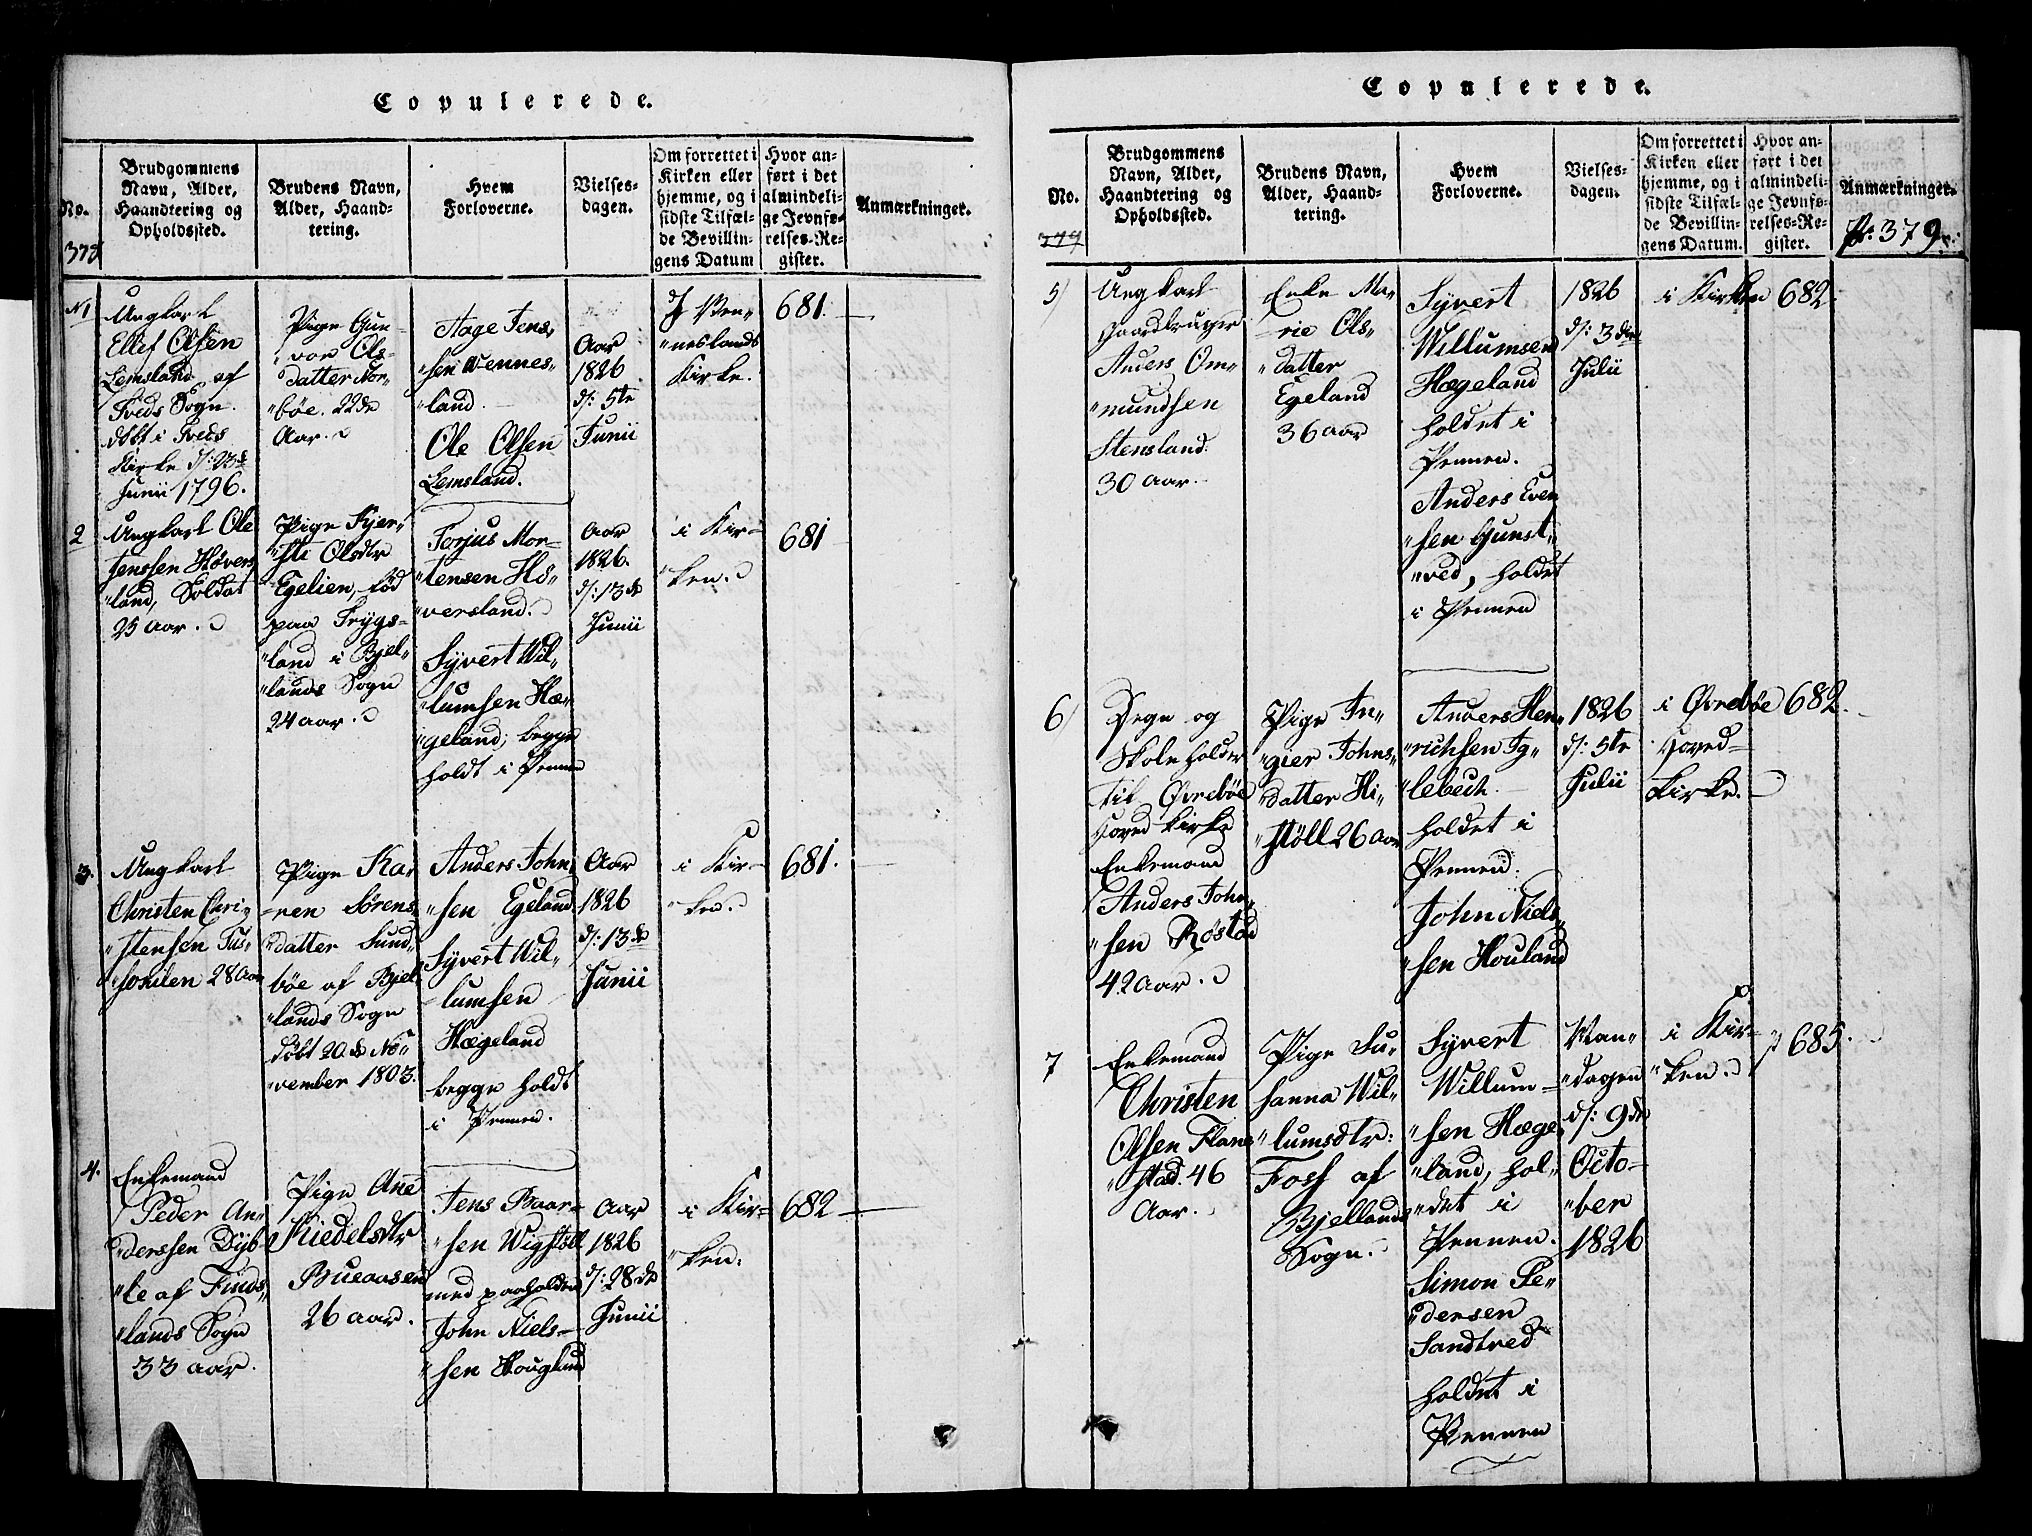 Copulerede.
No.
378
Brudgommens
Navn, Alder,
Haandtering og
Opholdssted.
Brudens Navn,
Alder, Haand-
tering.
Hvem
Forloverne.
Vielses-
dagen.
Om forrettet i
Kirken eller
hjemme, og i
sidste Tilfæl-
de Bevillin-
gens Datum
Hvor an-
ført i det
almindeli-
ge Jevnfø-
relses-Re-
gister.
Anmærkninger.
N1
Ungkarl
Ellef Olsen
Lemsland af
Tveds Sogn.
døbt i Tveds
Kirke d: 23d
Junii 1796.
Pige Gun-
vor Ols-
datter Nor-
bøe. 22de
Aar.
Aage Jens,
sen Wennes-
land.
Ole Olsen
Lemsland.
Aar
1826
d: 5te
Junii
I Ven-
neslands
Kirke.
681
2
Ungkarl Ole
Jenssen Høvers-
land, Soldat
25 Aar.
Pige Kjer-
sti Olsdtr
Egelien, fød
paa Trygs-
land i Bjel-
lands Sogn
24 aar.
Torjus Mor-
tensen Hö-
versland.
Syvert Wil-
lumsen Hæ-
geland; begge
holdt i Pennen
Aar
1826.
d: 13de
Junii
i Kir-
ken.
681
3.
Ungkarl
Christen Chri-
stensen Tus-
hoilen 28 Aar
Pige Ka-
ren Sörens
datter Sund-
böe af Bjel-
lands Sogn
döbt 20de No-
vember 1803.
Anders John-
sen Egeland
Syvert Wil-
lumsen
Hægeland
begge holdt
i Pennen.
Aar
1826
d: 13de
Junii
i Kir-
ken.
681.
4.
Enkemand
Peder An-
derssen Dyb-
le af Finds-
lands Sogn
33 aar.
Pige Ane
Kiedelsdtr
Bueaasen
26 aar.
Jens Baar-
sen Wigstöll
med paaholden
John Niels-
sen Houglund
Aar
1826
d: 28de
Junii
i Kir-
ken.
682
Copulerede.
No.
379
Brudgommens
Navn, Alder,
Haandtering og
Opholdssted.
Brudens Navn,
Alder, Haand-
tering.
Hvem
Forloverne.
Vielses-
dagen.
Om forrettet i
Kirken eller
hjemme, og i
sidste Tilfæl-
de Bevillin-
gens Datum.
Hvor an-
ført i det
almindeli-
ge Jevnfø-
relses-Re-
gister.
Anmærkninger.
P: 379.
5)
Ungkarl
Gaardbruger
Anders Om-
mundsen
Stensland.
30 aar.
Enke Ma-
rie Ols-
datter
Egeland
36 aar
Syvert
Willumsen
Hægeland
holdet i
Pennen.
Anders Even
sen Gunst-
ved, holdet
i Pennen
1826
d: 3die
Julii
i Kirken
682.
6)
Degn og
Skoleholder
til Øvrebøe
Hoved Kirke
Enkemand
Anders John-
sen Röstad
42 aar.
Pige In-
gier Johns-
datter Hi-
stöll 26 aar
Anders Hen-
richsen Ig-
lebech.
holdet i
Pennen.
John Niels-
sen Houland
1826
d: 5te
Julii
i Øvrebøe
Hoved-
Kirke.
682.
7
Enkemand
Christen
Olsen Flane
stad. 46
Aar.
Pige Su-
sanna Wil-
lumsdtr:
Foss af
Bjellands
Sogn.
Syvert
Willum-
sen Hæge-
land, hol-
det i
Pennen.
Simon Pe-
dersen
Sandtved
holdet i
Pennen
Man-
dagen
d: 9de
Octo-
ber
1826
i Kir-
ken.
p 685.